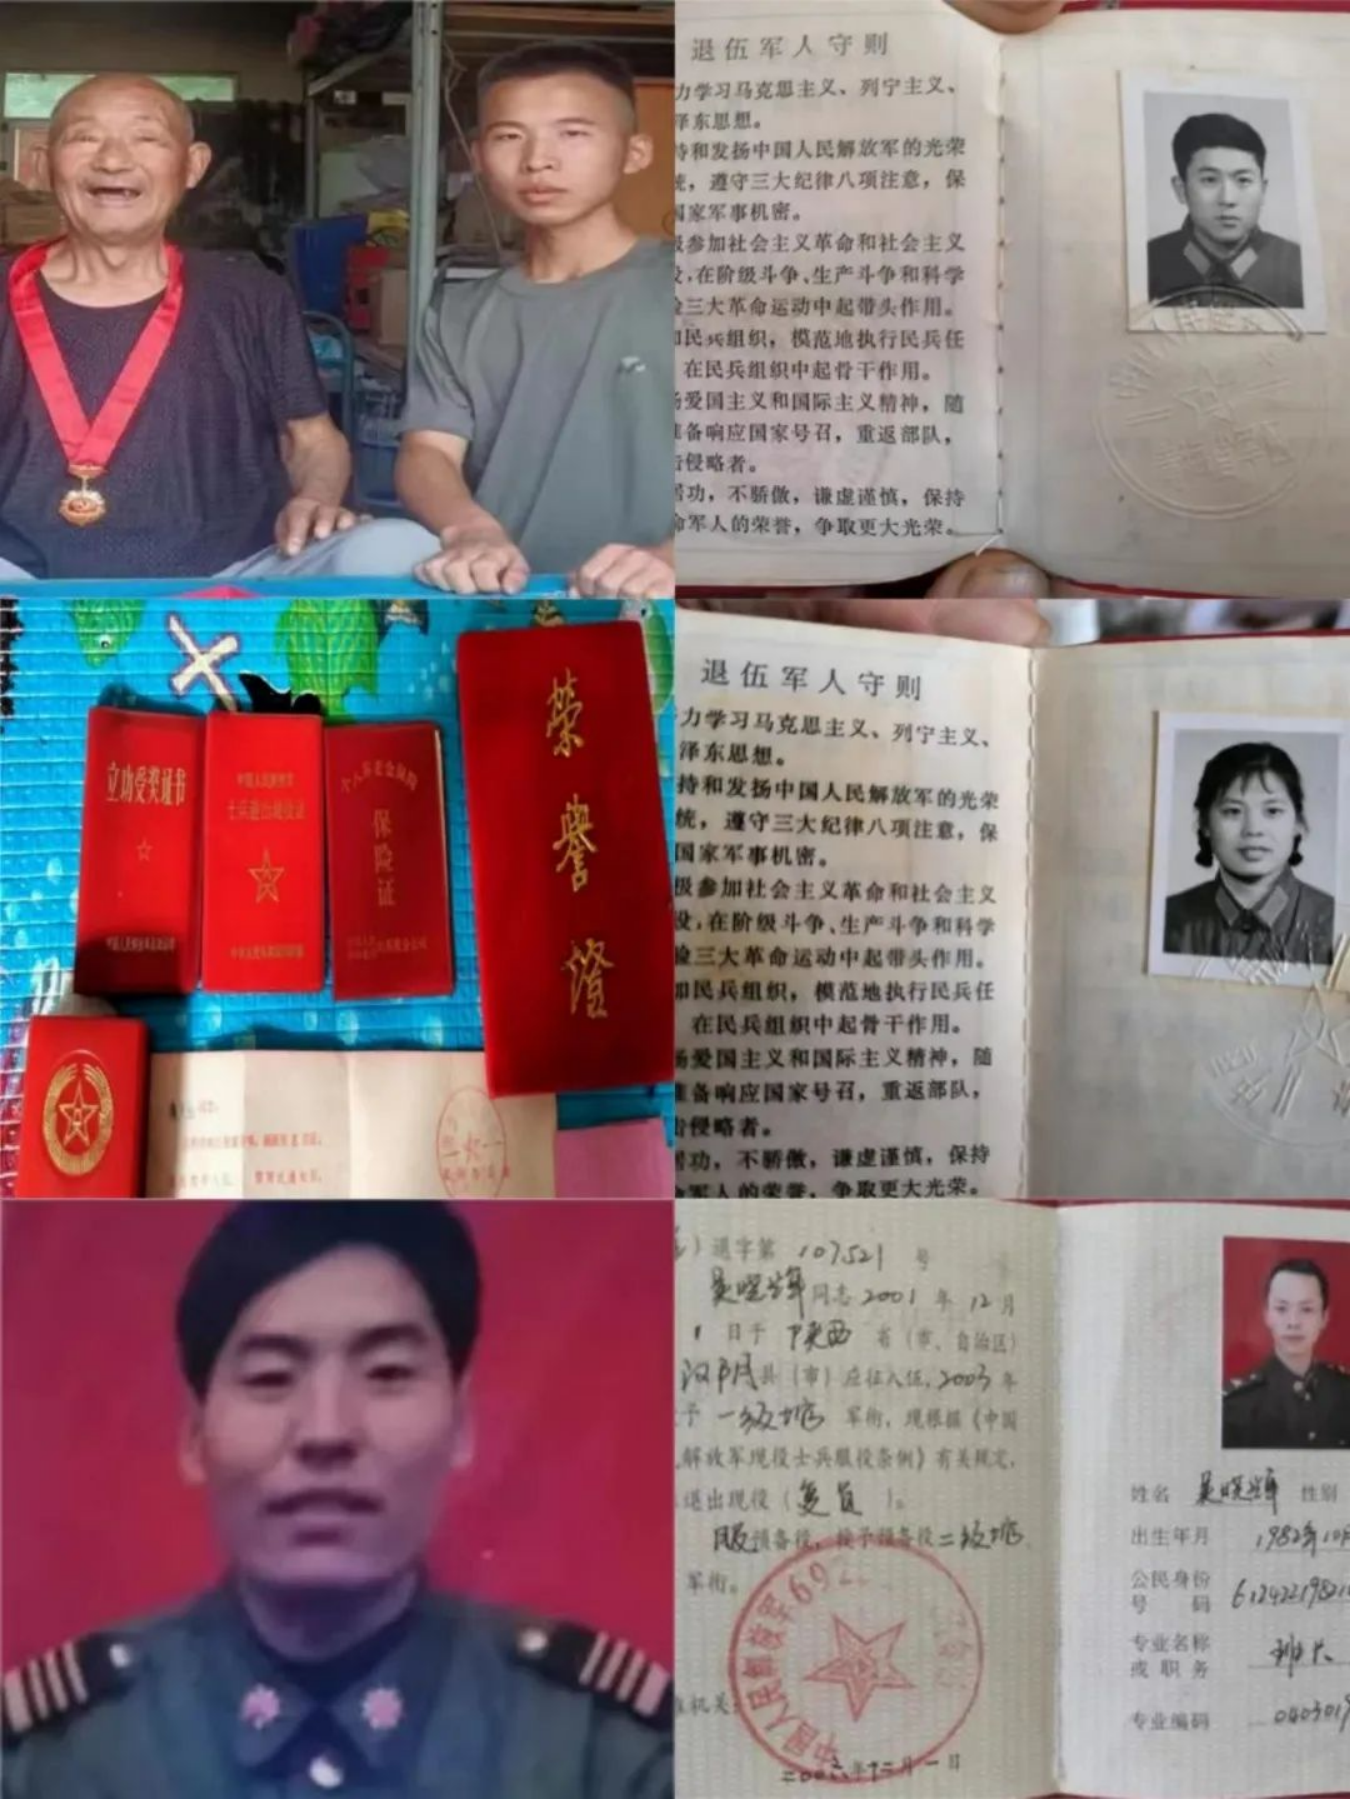 退伍军人守则
力学习马克思主义、列宁主义、
泽东思想。
持和发扬中国人民解放军的光荣
统，遵守三大纪律八项注意，保
国家军事机密。
极参加社会主义革命和社会主义
设，在阶级斗争、生产斗争和科学
验三大革命运动中起带头作用。
加民兵组织，模范地执行民兵任
在民兵组织中起骨干作用。
扬爱国主义和国际主义精神，随
准备响应国家号召，重返部队，
击侵略者。
居功，不骄傲，谦虚谨慎，保持
命军人的荣誉，争取更大光荣。
立功受奖证书
士兵退出现役证
保险证
荣誉证
退伍军人守则
力学习马克思主义、列宁主义、
泽东思想。
持和发扬中国人民解放军的光荣
统，遵守三大纪律八项注意，保
国家军事机密。
极参加社会主义革命和社会主义
设，在阶级斗争、生产斗争和科学
验三大革命运动中起带头作用。
加民兵组织，模范地执行民兵任
在民兵组织中起骨干作用。
扬爱国主义和国际主义精神，随
准备响应国家号召，重返部队，
击侵略者。
居功，不骄傲，谦虚谨慎，保持
命军人的荣誉，争取更大光荣。
）退字第 107521 号
吴晓辉同志2001年12月
1日于陕西省（市、自治区）
汉阴县（市）应征入伍，2003年
予一级士官军衔，现根据《中国
解放军现役士兵服役条例》有关规定，
退出现役（复员）。
服预备役，授予预备役二级士官
军衔。
机关
二〇〇六年十二月一日
姓名 吴晓辉 性别
出生年月 1982年10
公民身份
号码 612422198210
专业名称
或职务 班长
专业编码 0403019